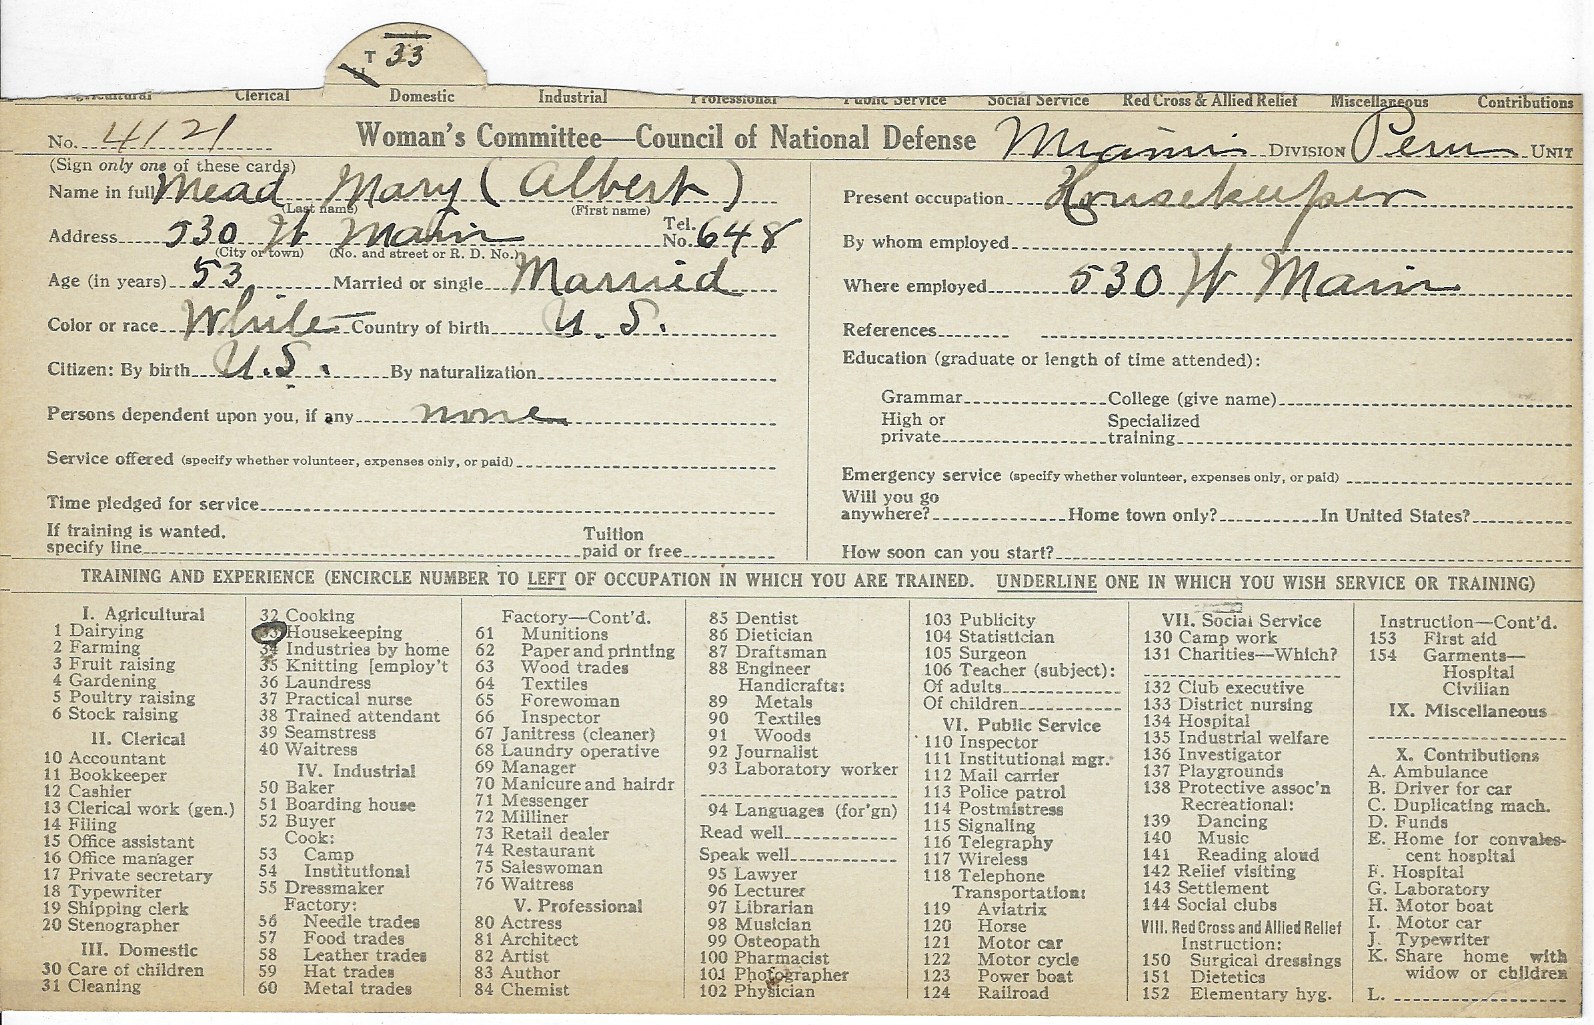 T 33
U
Agricultural Clerical Domestic Industrial Professional Public Service Social Service Red Cross & Allied Relief Miscellaneous Contributions
No. 4121 Woman's Committee—Council of National Defense Miami DIVISION Peru UNIT
(Sign only one of these cards)
Name in full Mead Mary (Albert)
(Last name) (First name)
Address 530 W Main Tel. No. 648
(City or town) (No. and street or R. D. No.)
Age (in years) 53 Married or single Married
Color or race White Country of birth U. S.
Citizen: By birth U.S. By naturalization
Persons dependent upon you, if any none
Service offered (specify whether volunteer, expenses only, or paid)
Time pledged for service
If training is wanted, specify line Tuition paid or free
Present occupation Housekeeper
By whom employed
Where employed 530 W Main
References
Education (graduate or length of time attended):
Grammar College (give name)
High or private Specialized training
Emergency service (specify whether volunteer, expenses only, or paid)
Will you go anywhere? Home town only? In United States?
How soon can you start?
TRAINING AND EXPERIENCE (ENCIRCLE NUMBER TO LEFT OF OCCUPATION IN WHICH YOU ARE TRAINED. UNDERLINE ONE IN WHICH YOU WISH SERVICE OR TRAINING)
I. Agricultural
1 Dairying
2 Farming
3 Fruit raising
4 Gardening
5 Poultry raising
6 Stock raising
II. Clerical
10 Accountant
11 Bookkeeper
12 Cashier
13 Clerical work (gen.)
14 Filing
15 Office assistant
16 Office manager
17 Private secretary
18 Typewriter
19 Shipping clerk
20 Stenographer
III. Domestic
30 Care of children
31 Cleaning
32 Cooking
33 Housekeeping
34 Industries by home
35 Knitting [employ't
36 Laundress
37 Practical nurse
38 Trained attendant
39 Seamstress
40 Waitress
IV. Industrial
50 Baker
51 Boarding house
52 Buyer
Cook:
53 Camp
54 Institutional
55 Dressmaker
Factory:
56 Needle trades
57 Food trades
58 Leather trades
59 Hat trades
60 Metal trades
Factory—Cont'd.
61 Munitions
62 Paper and printing
63 Wood trades
64 Textiles
65 Forewoman
66 Inspector
67 Janitress (cleaner)
68 Laundry operative
69 Manager
70 Manicure and hairdr
71 Messenger
72 Milliner
73 Retail dealer
74 Restaurant
75 Saleswoman
76 Waitress
V. Professional
80 Actress
81 Architect
82 Artist
83 Author
84 Chemist
85 Dentist
86 Dietician
87 Draftsman
88 Engineer
Handicrafts:
89 Metals
90 Textiles
91 Woods
92 Journalist
93 Laboratory worker
94 Languages (for'gn)
Read well
Speak well
95 Lawyer
96 Lecturer
97 Librarian
98 Musician
99 Osteopath
100 Pharmacist
101 Photographer
102 Physician
103 Publicity
104 Statistician
105 Surgeon
106 Teacher (subject):
Of adults
Of children
VI. Public Service
110 Inspector
111 Institutional mgr.
112 Mail carrier
113 Police patrol
114 Postmistress
115 Signaling
116 Telegraphy
117 Wireless
118 Telephone
Transportation:
119 Aviatrix
120 Horse
121 Motor car
122 Motor cycle
123 Power boat
124 Railroad
VII. Social Service
130 Camp work
131 Charities—Which?
132 Club executive
133 District nursing
134 Hospital
135 Industrial welfare
136 Investigator
137 Playgrounds
138 Protective assoc'n
Recreational:
139 Dancing
140 Music
141 Reading aloud
142 Relief visiting
143 Settlement
144 Social clubs
VIII. Red Cross and Allied Relief
Instruction:
150 Surgical dressings
151 Dietetics
152 Elementary hyg.
Instruction—Cont'd.
153 First aid
154 Garments—
Hospital
Civilian
IX. Miscellaneous
X. Contributions
A. Ambulance
B. Driver for car
C. Duplicating mach.
D. Funds
E. Home for convales-
cent hospital
F. Hospital
G. Laboratory
H. Motor boat
I. Motor car
J. Typewriter
K. Share home with
widow or children
L.